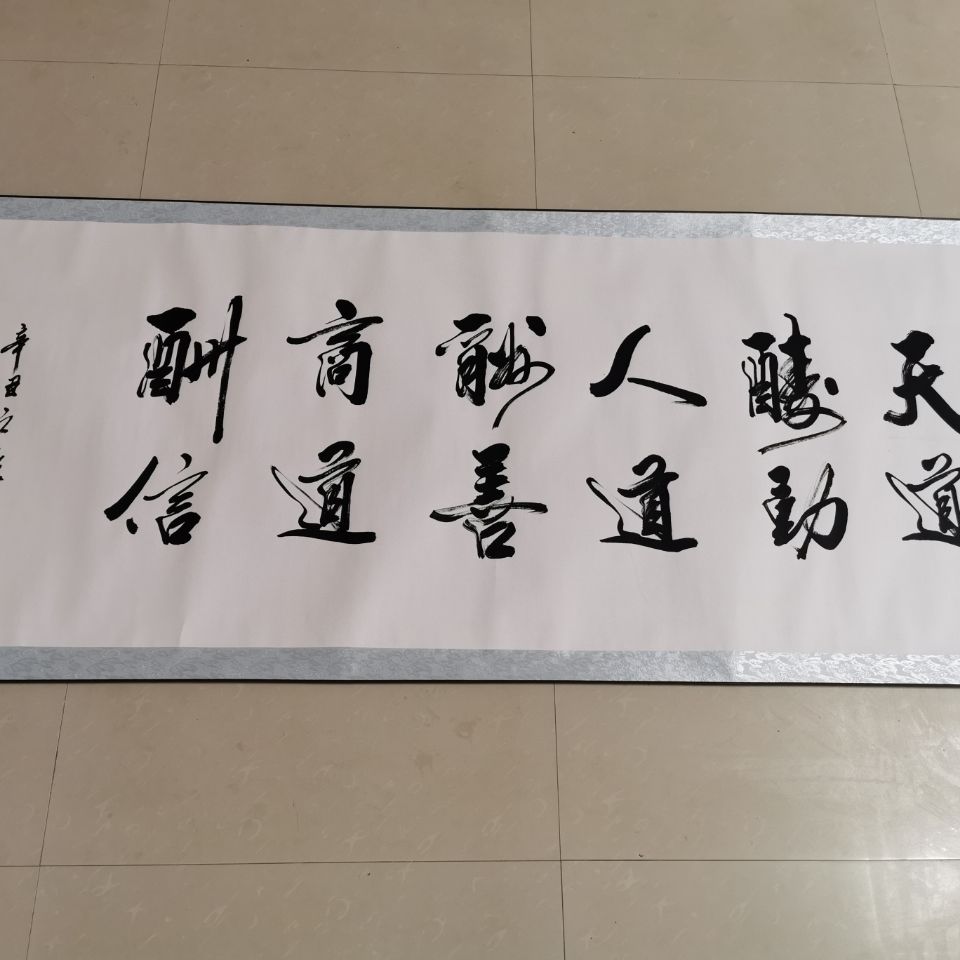 天道
酬勤
人道
酬善
商道
酬信
辛丑之